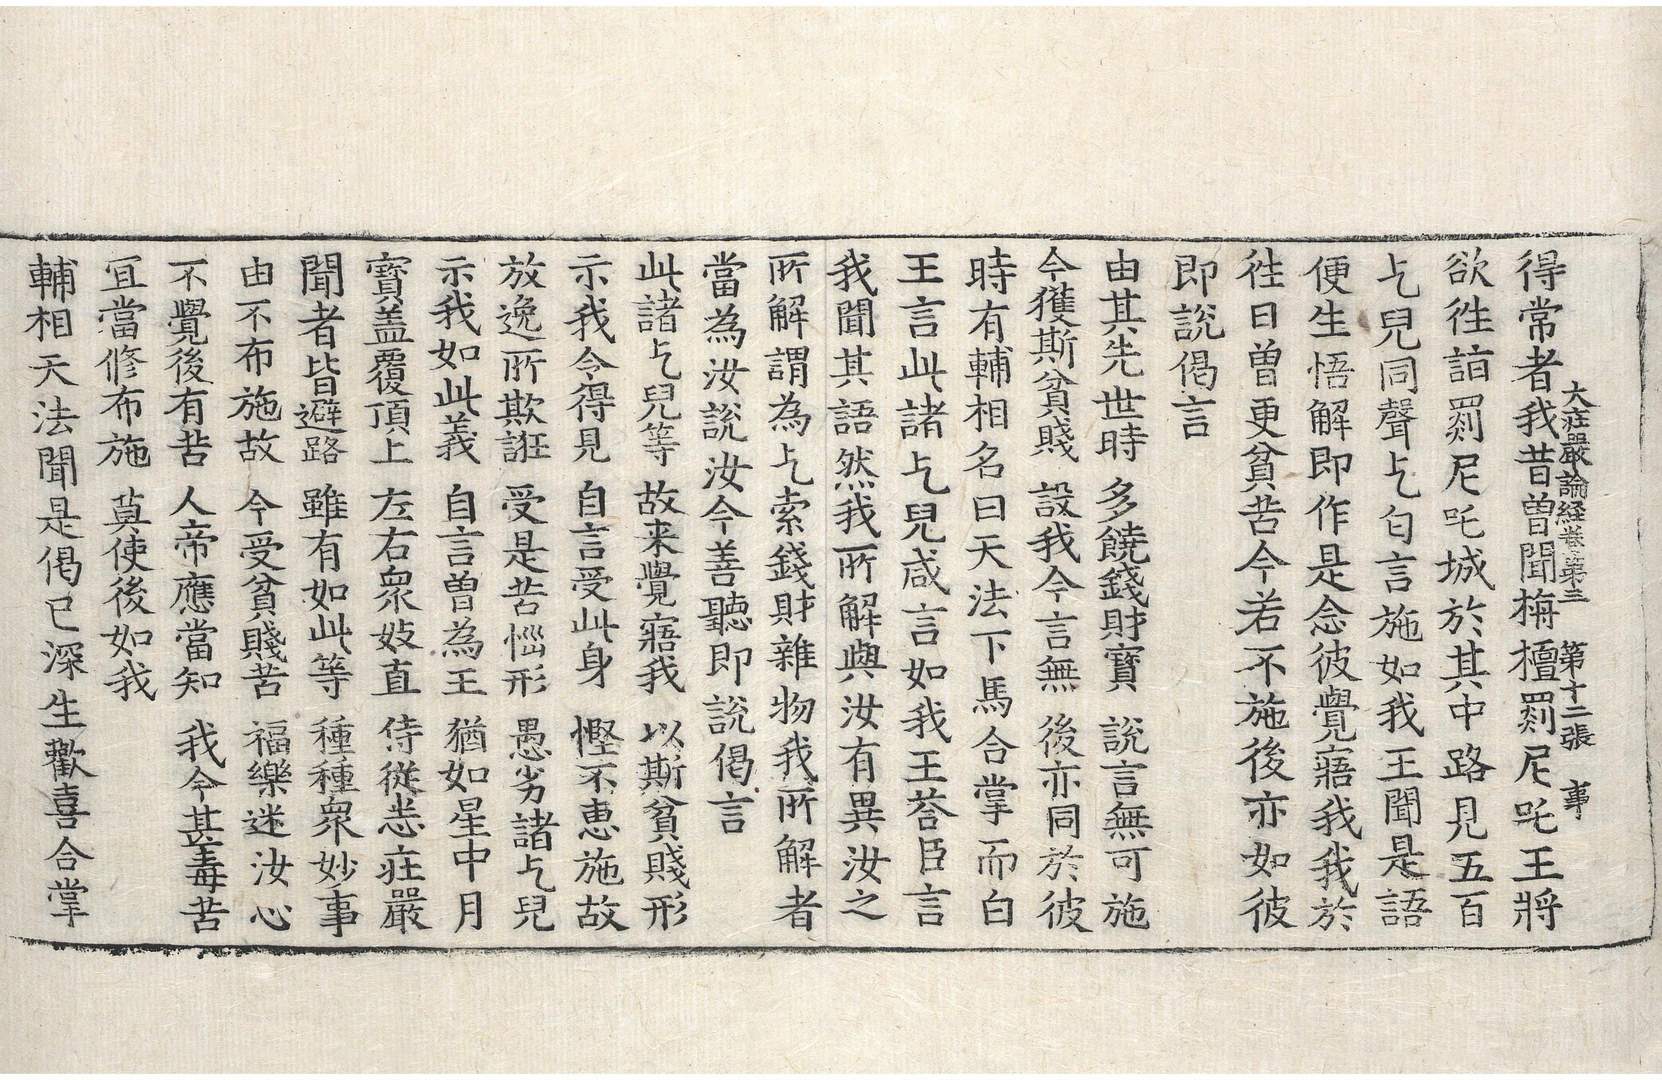 大莊嚴論経卷第三　第十二張　事
得常者我昔曽聞栴檀罽尼吒王將
欲徃詣罽尼吒城於其中路見五百
乞兒同聲乞匃言施如我王聞是語
便生悟解即作是念彼覺寤我我於
徃日曽更貧苦今若不施後亦如彼
即說偈言
由其先世時　多饒錢財寶　說言無可施
今獲斯貧賤　設我今言無　後亦同於彼
時有輔相名曰天法下馬合掌而白
王言此諸乞兒咸言如我王荅臣言
我聞其語然我所解與汝有異汝之
所解謂為乞索錢財雜物我所解者
當為汝說汝今善聽即說偈言
此諸乞兒等　故来覺寤我　以斯貧賤形
示我令得見　自言受此身　慳不恵施故
放逸所欺誑　受是苦惱形　愚劣諸乞兒
示我如此義　自言曽為王　猶如星中月
寳盖覆頂上　左右衆妓直　侍從悉莊嚴
聞者皆避路　雖有如此等　種種衆妙事
由不布施故　今受貧賤苦　福樂迷汝心
不覺後有苦　人帝應當知　我今甚毒苦
冝當修布施　莫使後如我
輔相天法聞是偈已深生歡喜合掌